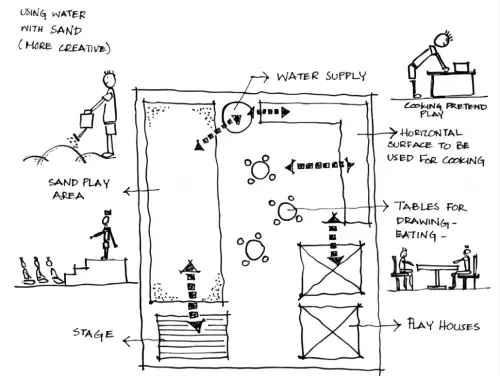 USING WATER
WITH SAND
(MORE CREATIVE)
WATER SUPPLY
COOKING PRETEND
PLAY
HORIZONTAL
SURFACE TO BE
USED FOR COOKING
SAND PLAY
AREA
TABLES FOR
DRAWING-
EATING-
STAGE
PLAY HOUSES